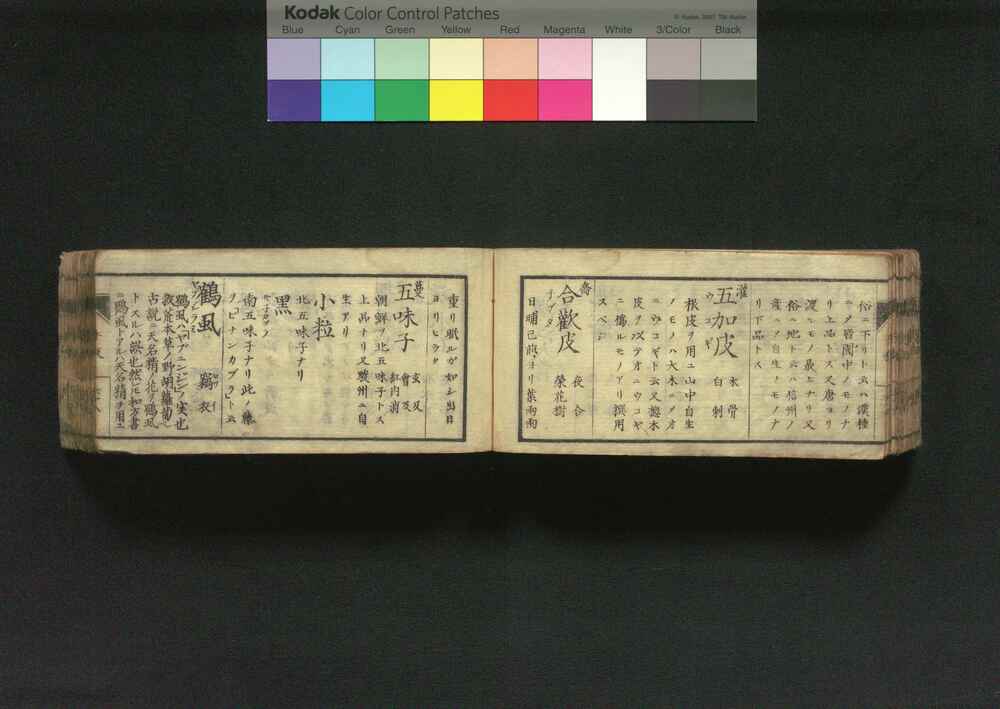 Kodak Color Control Patches
© Kodak, 2007 TM: Kodak
Blue Cyan Green Yellow Red Magenta White 3/Color Black
俗ニ下リト云ハ漢種
ニノ皆國中ノモノナ
リ上品トス又唐ヨリ
渡ルモノ最上ナリ又
俗ニ地トニハ信州ノ
産ニノ自生ノモノナ
リ下品トス
灌
五加皮
ウコギ
木骨
白刺
根皮ヲ用ユ山中自生
ノモノハ大木ニノオ
ニウコギト云又總木
皮ヲバメテオニウコギ
ニ偽ルモノアリ撰用
スベシ
喬
合歡皮
子ブタ
夜合
榮花樹
日晡已後ヨリ葉兩兩
重リ眠ルガ如シ出日
ヨリヒラク
蔓
五味子
玄及
會及
朝鮮ヲ北五味子トス
上品ナリ又駿州ニ自
生アリ
小粒
北五味子ナリ
黒
南五味子ナリ此ノ藤
ヲビナンカヅラト云
鶴虱
竊衣
鶴虱ハヤブニンジンノ実也
古説ニ天名精ノ花ヲ鶴虱
トスルハ誤也然𪜈和方書
ニ鶴虱トアルハ天名精ヲ用ユ